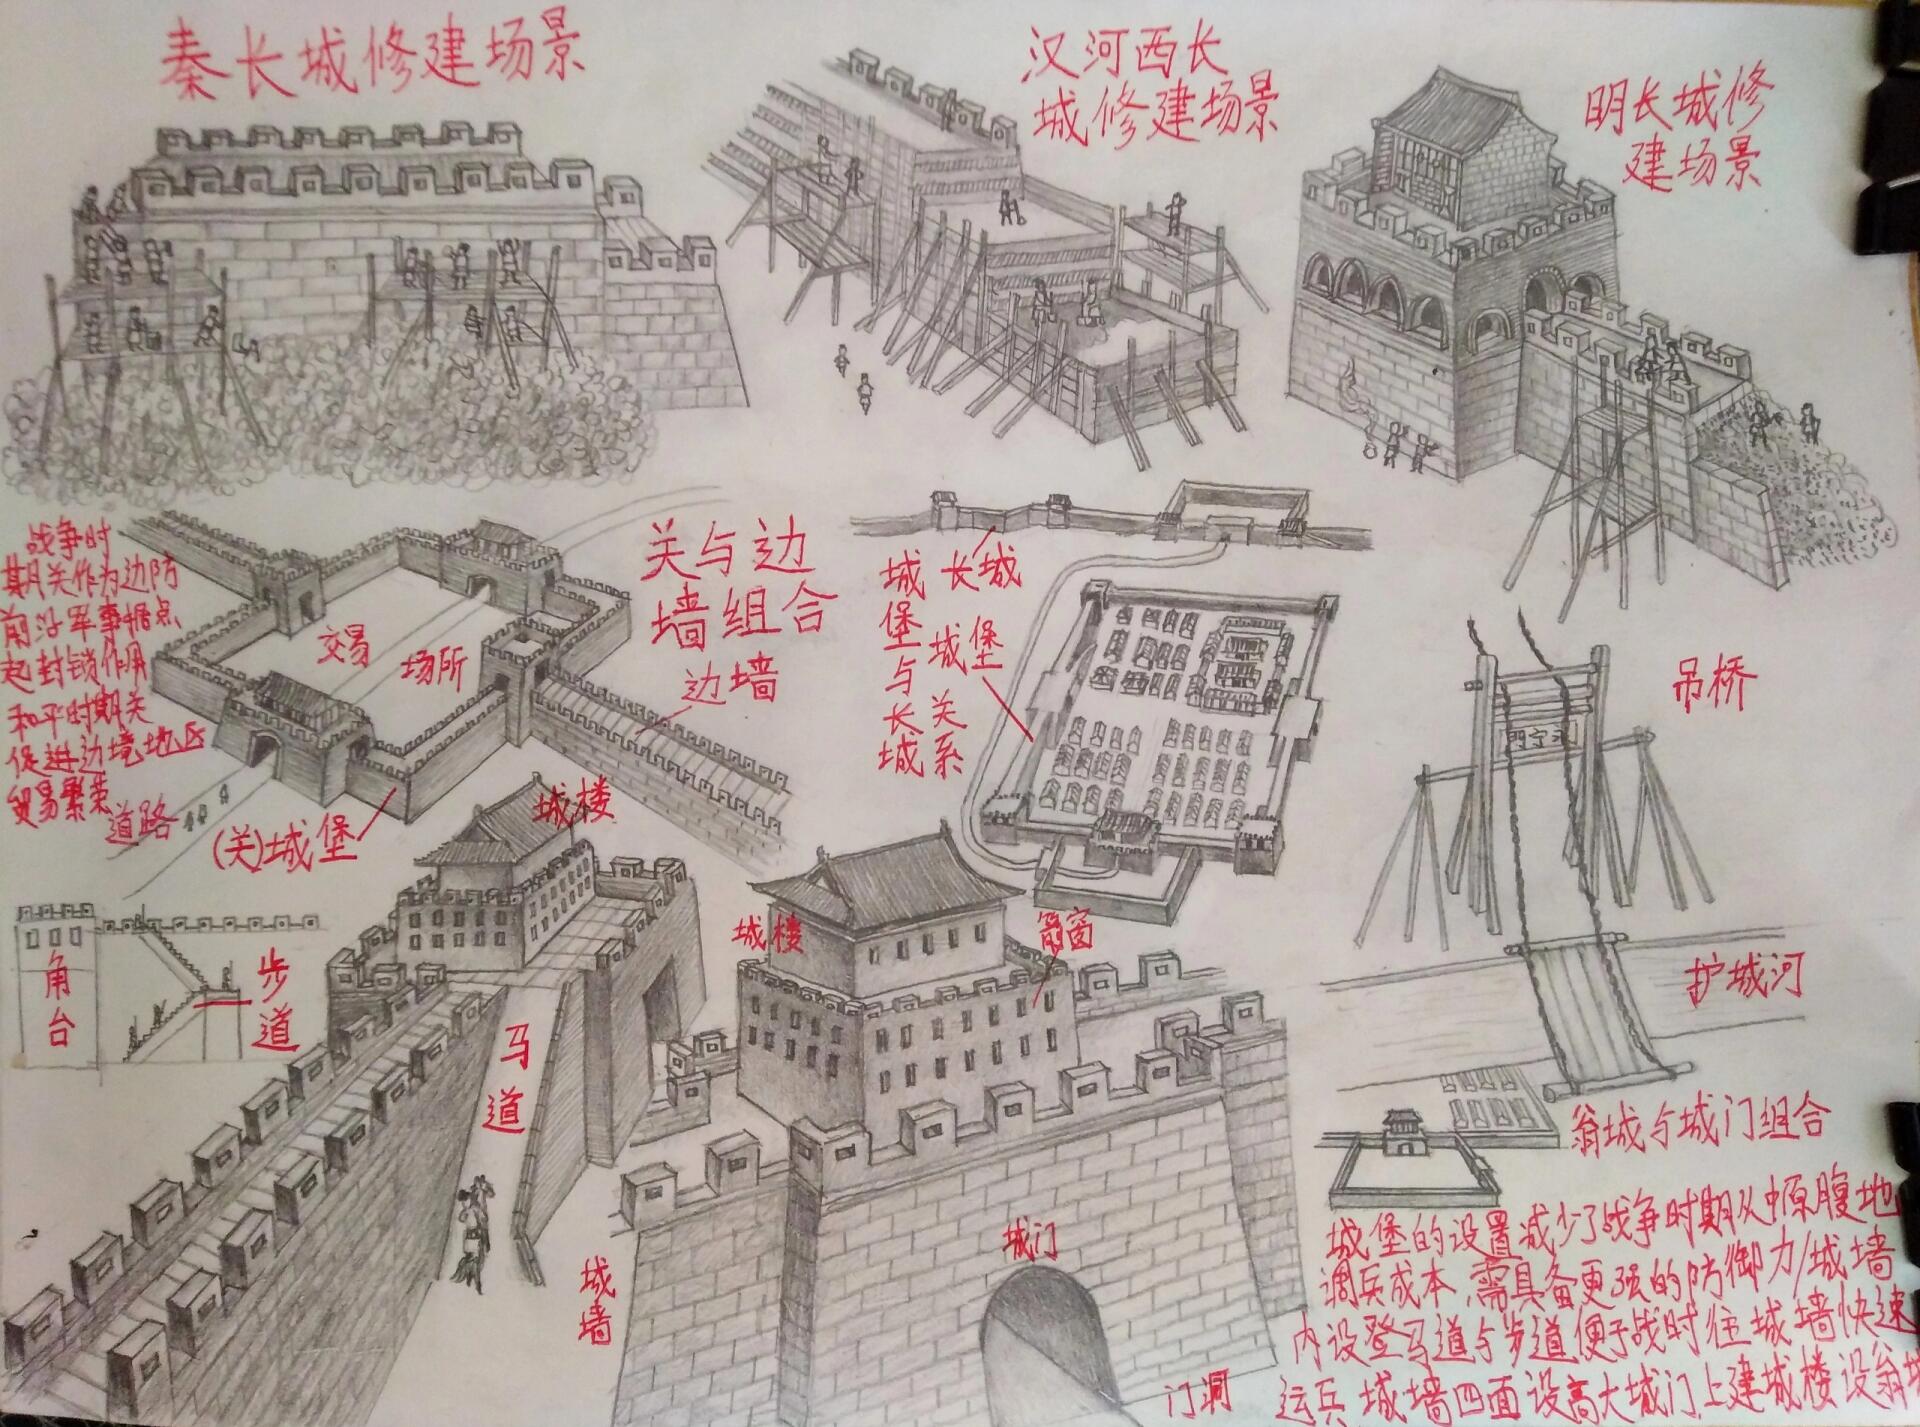 秦长城修建场景
汉河西长
城修建场景
明长城修
建场景
战争时
期关作为边防
前沿军事据点
起封锁作用
和平时期关
促进边境地区
贸易繁荣
道路
(关)城堡
交易
场所
关与边
墙组合
边墙
城堡与长城关系
长城
城堡
吊桥
門定永
护城河
角台
步道
城楼
马道
城楼
箭窗
城墙
城门
门洞
翁城与城门组合
城堡的设置减少了战争时期从中原腹地
调兵成本,需具备更强的防御力/城墙
内设登马道与步道便于战时往城墙快速
运兵城墙四面设高大城门上建城楼设翁城